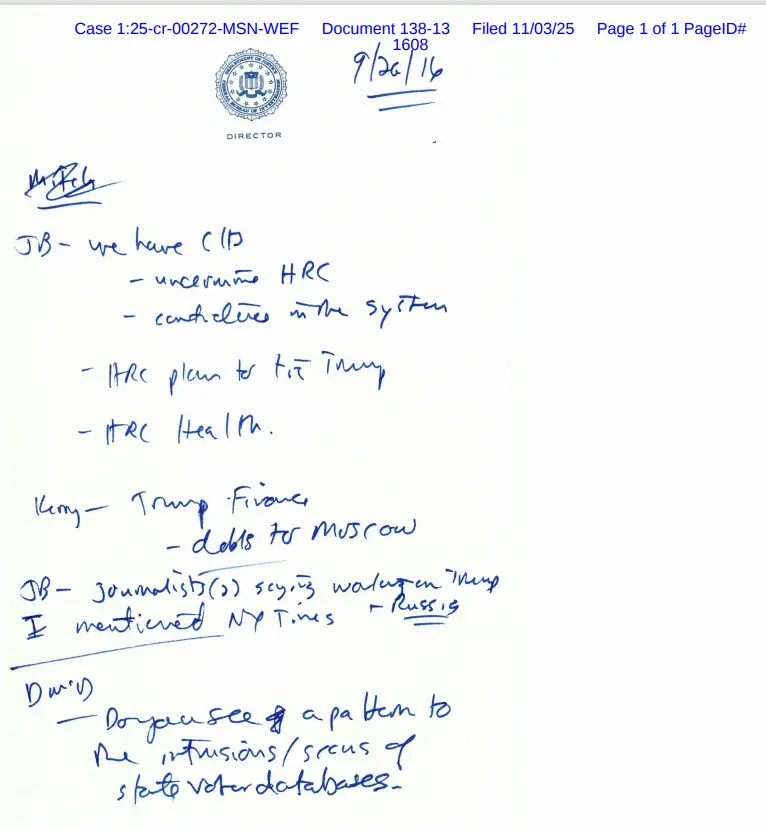 Case 1:25-cr-00272-MSN-WEF Document 138-13 Filed 11/03/25 Page 1 of 1 PageID#
1608
9/26/16
DIRECTOR
JB - we have CIP
- undermine HRC
- candidates in the system
- HRC plan to tie Trump
- HRC Health.
Kerry - Trump Finance
- debts to Moscow
JB - journalists(s) saying working on Trump
+ Russia
I mentioned NY Times
- Do you see a pattern to
the intrusions/scans of
state voter databases.